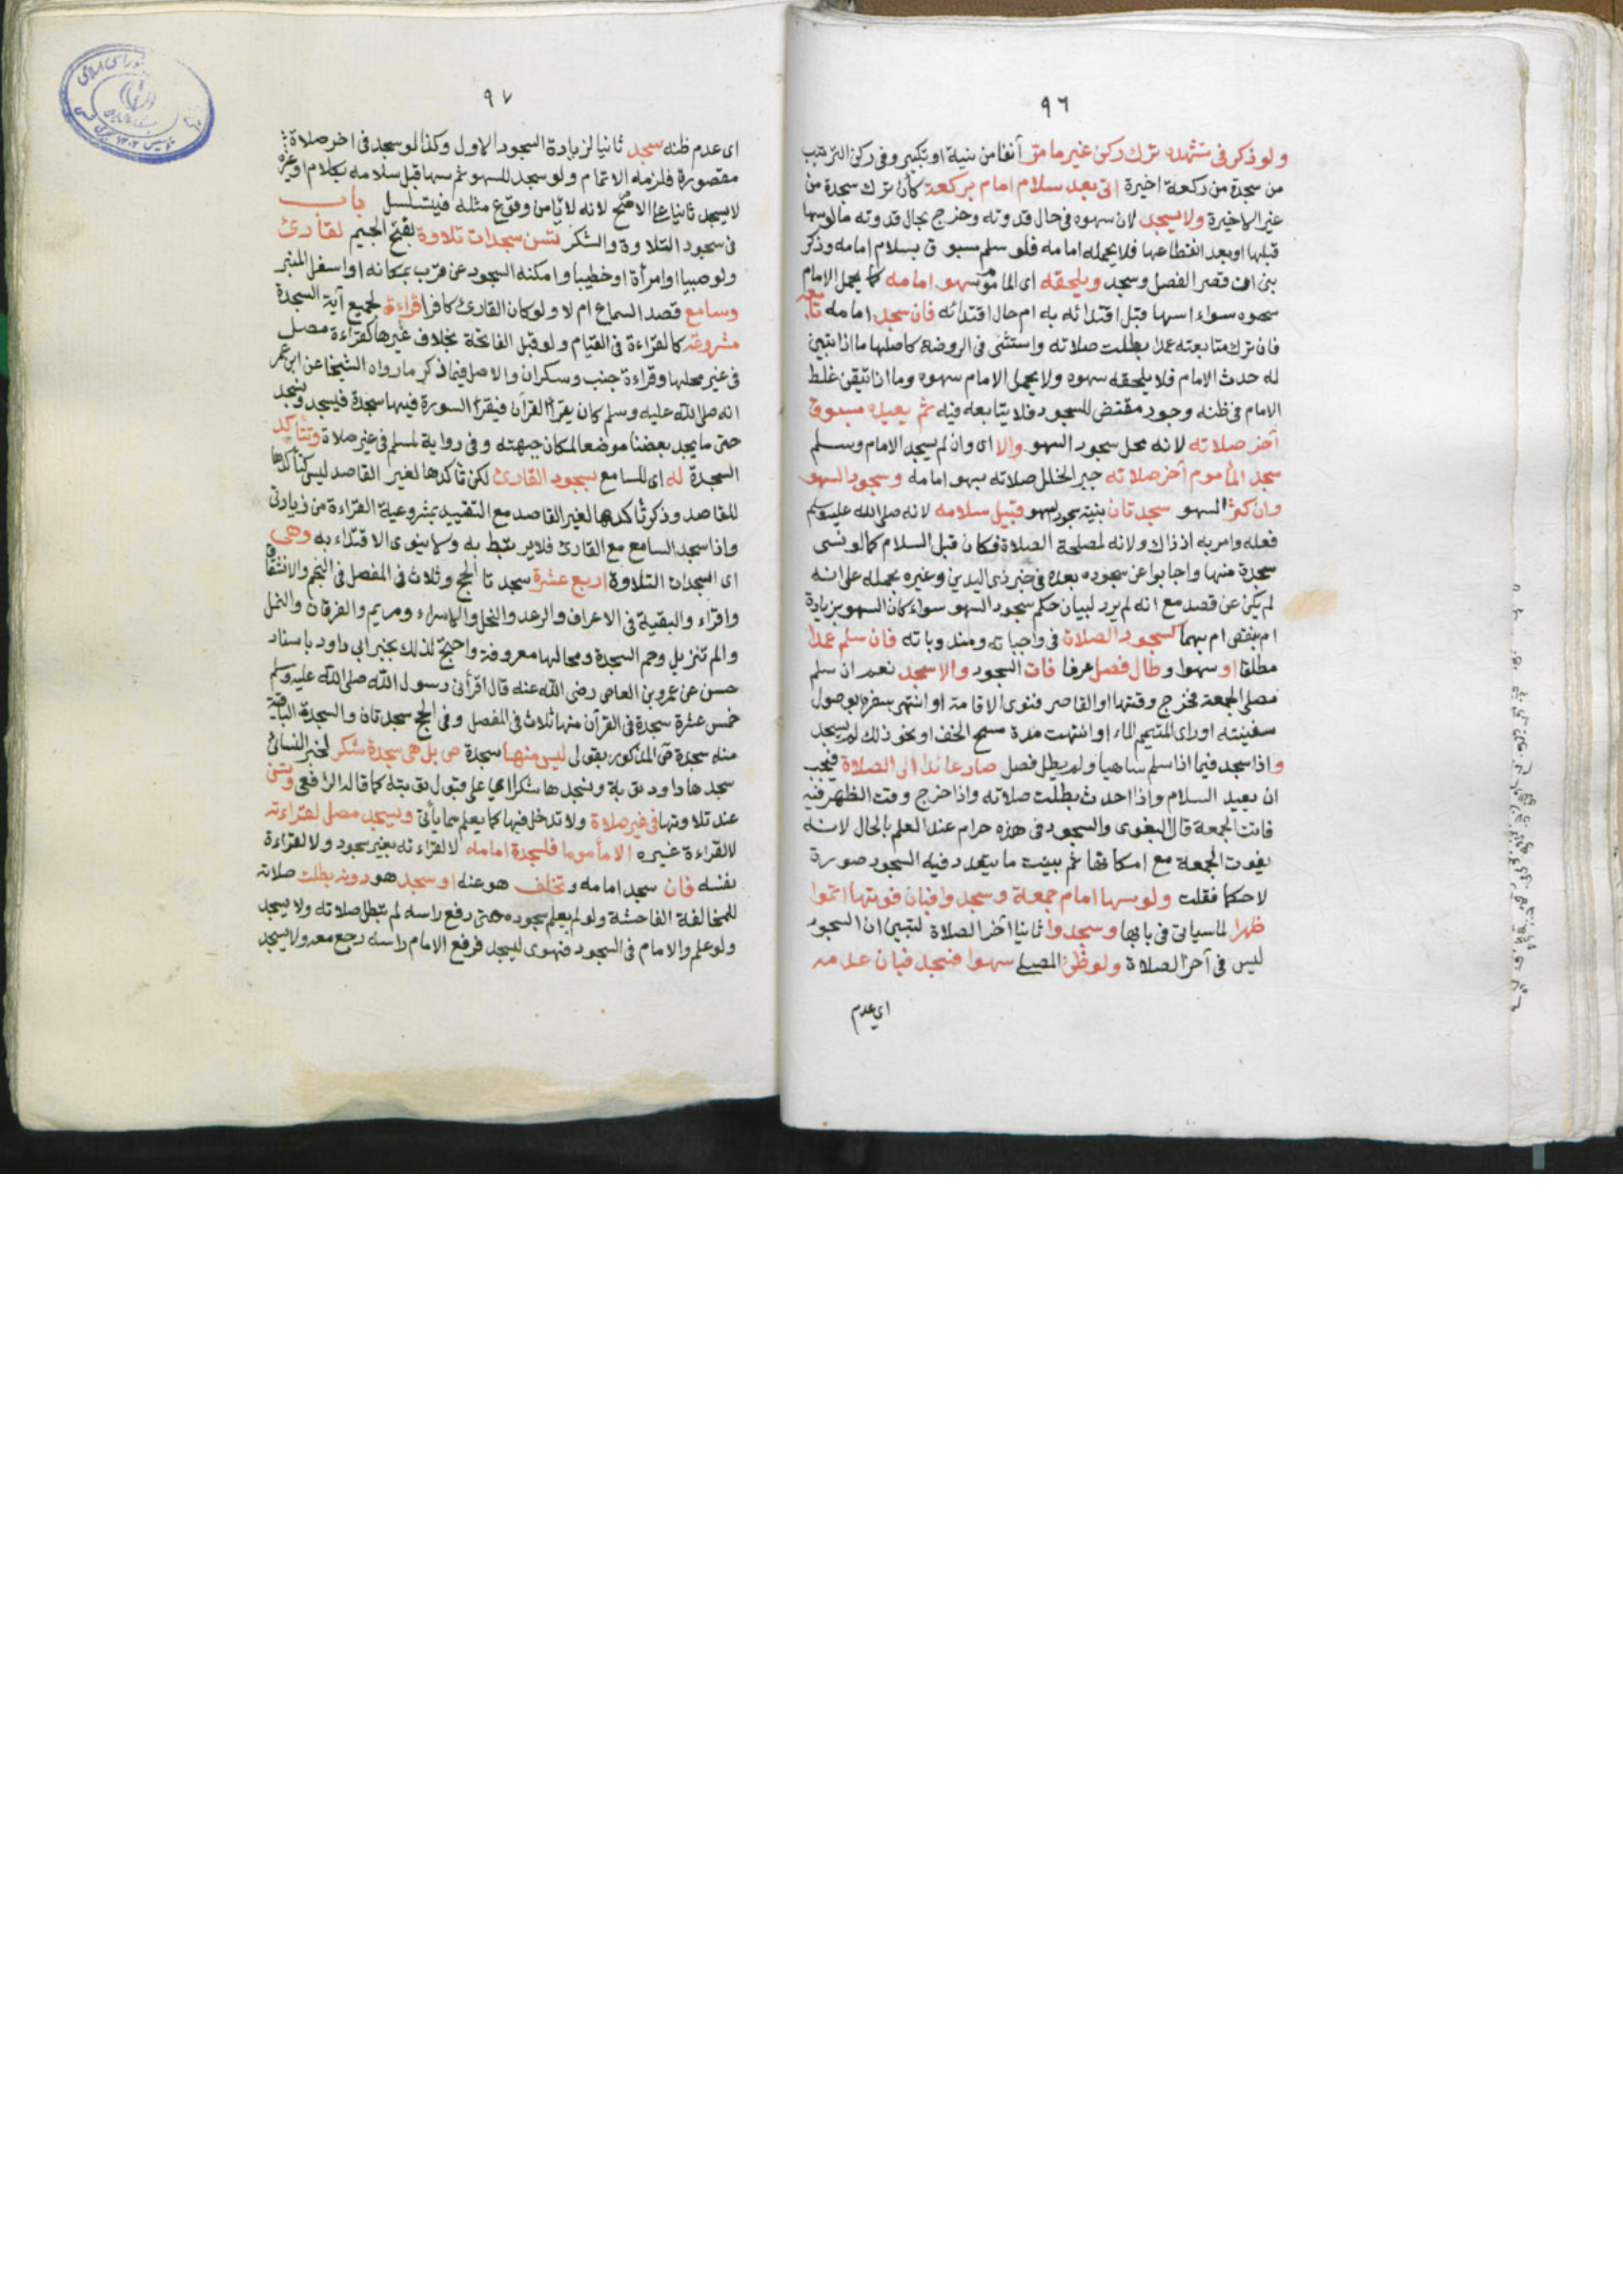 ٩٦
ولو ذكر فى تشهده ترك ركن غير ما مر آنفا من نية او تكبير وفى ركن الترتيب
من سجدة من ركعة اخيرة اتى بعد سلام امام بركعة كأن ترك سجدة من
غير الاخيرة ولا يسجد لان سهوه فى حال قدوته وخرج بحال قدوته ما لو سها
قبلها او بعد انقطاعها فلا يحمله امامه فلو سلم مسبوق بسلام امامه وذكر
بنى ان قصر الفصل وسجد ويلحقه اى المأموم سهو امامه كما يحمل الامام
سهوه سواء اسها قبل اقتدائه به ام حال اقتدائه فان سجد امامه تابعه
فان ترك متابعته عمدا بطلت صلاته واستثنى فى الروضة كاصلها ما اذا تبين
له حدث الامام فلا يلحقه سهوه ولا يحمل الامام سهوه وما اذا تيقن غلط
الامام فى ظنه وجود مقتض للسجود فلا يتابعه فيه ثم يعيده مسبوق
آخر صلاته لانه محل سجود السهو والا اى وان لم يسجد الامام وسلم
سجد المأموم آخر صلاته جبر الخلل صلاته بسهو امامه وسجود السهو
وان كثر السهو سجدتان بنية سجود السهو قبيل سلامه لانه صلى الله عليه وسلم
فعله وامر به اذ ذاك ولانه لمصلحة الصلاة فكان قبل السلام كما لو نسى
سجدة منها واجابوا عن سجوده بعده فى خبر ذى اليدين وغيره بحمله على انه
لم يكن عن قصد مع انه لم يرد لبيان حكم سجود السهو سواء كان السهو بزيادة
ام بنقص ام بهما كسجود الصلاة فى واجباته ومندوباته فان سلم عمدا
مطلقا او سهوا وطال فصل عرفا فات السجود والا سجد نعم ان سلم
مصلى الجمعة فخرج وقتها او القاصر فنوى الاقامة او انتهى سفره بوصول
سفينته او رأى المتيمم الماء او انتهت مدة مسح الخف او نحو ذلك لم يسجد
واذا سجد فيما اذا سلم ساهيا ولم يطل فصل صار عائدا الى الصلاة فيجب
ان يعيد السلام واذا احدث بطلت صلاته واذا خرج وقت الظهر فيه
فاتت الجمعة قال البغوى والسجود فى هذه حرام عند العلم بالحال لانه
يفوت الجمعة مع امكانها ثم بينت ما يتعدد فيه السجود صورة
لا حكما فقلت ولو سها امام جمعة وسجدوا فبان فوتها اتموا
ظهرا لما سياتى فى بابها وسجدوا ثانيا آخر الصلاة لتبين ان السجود
ليس فى آخر الصلاة ولو ظن المصلى سهوا فسجد فبان عدمه
اى عدم
٩٧
اى عدم ظنه سجد ثانيا لزيادة السجود الاول وكذا لو سجد فى اخر صلاة
مقصورة فلزمه الاتمام ولو سجد للسهو ثم سها قبل سلامه بكلام او غيره
لا يسجد ثانيا على الاصح لانه لا يأمن وقوع مثله فيتسلسل باب
فى سجود التلاوة والشكر تسن سجدات تلاوة بفتح الجيم لقارئ
ولو صبيا او امرأة او خطيبا وامكنه السجود عن قرب بمكانه او اسفل المنبر
وسامع قصد السماع ام لا ولو كان القارئ كافرا قراءة لجميع آية السجدة
مشروعة كالقراءة فى القيام ولو قبل الفاتحة بخلاف غيرها كقراءة مصل
فى غير محلها وقراءة جنب وسكران والاصل فيما ذكر ما رواه الشيخان عن ابن عمر
انه صلى الله عليه وسلم كان يقرأ القرآن فيقرأ السورة فيها سجدة فيسجد ونسجد
حتى ما يجد بعضنا موضعا لمكان جبهته وفى رواية لمسلم فى غير صلاة وتتأكد
السجدة له اى للسامع بسجود القارئ لكن تأكدها لغير القاصد ليس كتأكدها
للقاصد وذكر تأكدها لغير القاصد مع التقييد بمشروعية القراءة من زيادتى
واذا سجد السامع مع القارئ فلا يرتبط به ولا ينوى الاقتداء به وهى
اى سجدات التلاوة اربع عشرة سجدتا الحج وثلاث فى المفصل فى النجم والانشقاق
واقراء والبقية فى الاعراف والرعد والنحل والاسراء ومريم والفرقان والنمل
والم تنزيل وحم السجدة ومحالها معروفة واحتج لذلك بخبر ابى داود باسناد
حسن عن عمرو بن العاص رضى الله عنه قال اقرأنى رسول الله صلى الله عليه وسلم
خمس عشرة سجدة فى القرآن منها ثلاث فى المفصل وفى الحج سجدتان والسجدة الباقية
منه سجدة ص المذكور بقولى ليس منها سجدة ص بل هى سجدة شكر لخبر النسائى
سجدها داود توبة ونسجدها شكرا اى على قبول توبته كما قاله الرافعى وتسن
عند تلاوتها فى غير صلاة ولا تدخل فيها كما يعلم مما يأتى ويسجد مصل لقراءته
لا لقراءة غيره الا مأموما فلسجدة امامه لا لقراءته بغير سجود ولا لقراءة
نفسه فان سجد امامه وتخلف هو عنه او سجد هو دونه بطلت صلاته
للمخالفة الفاحشة ولو لم يعلم سجوده حتى رفع راسه لم تبطل صلاته ولا يسجد
ولو علم والامام فى السجود فهوى ليسجد فرفع الامام راسه رجع معه ولا يسجد